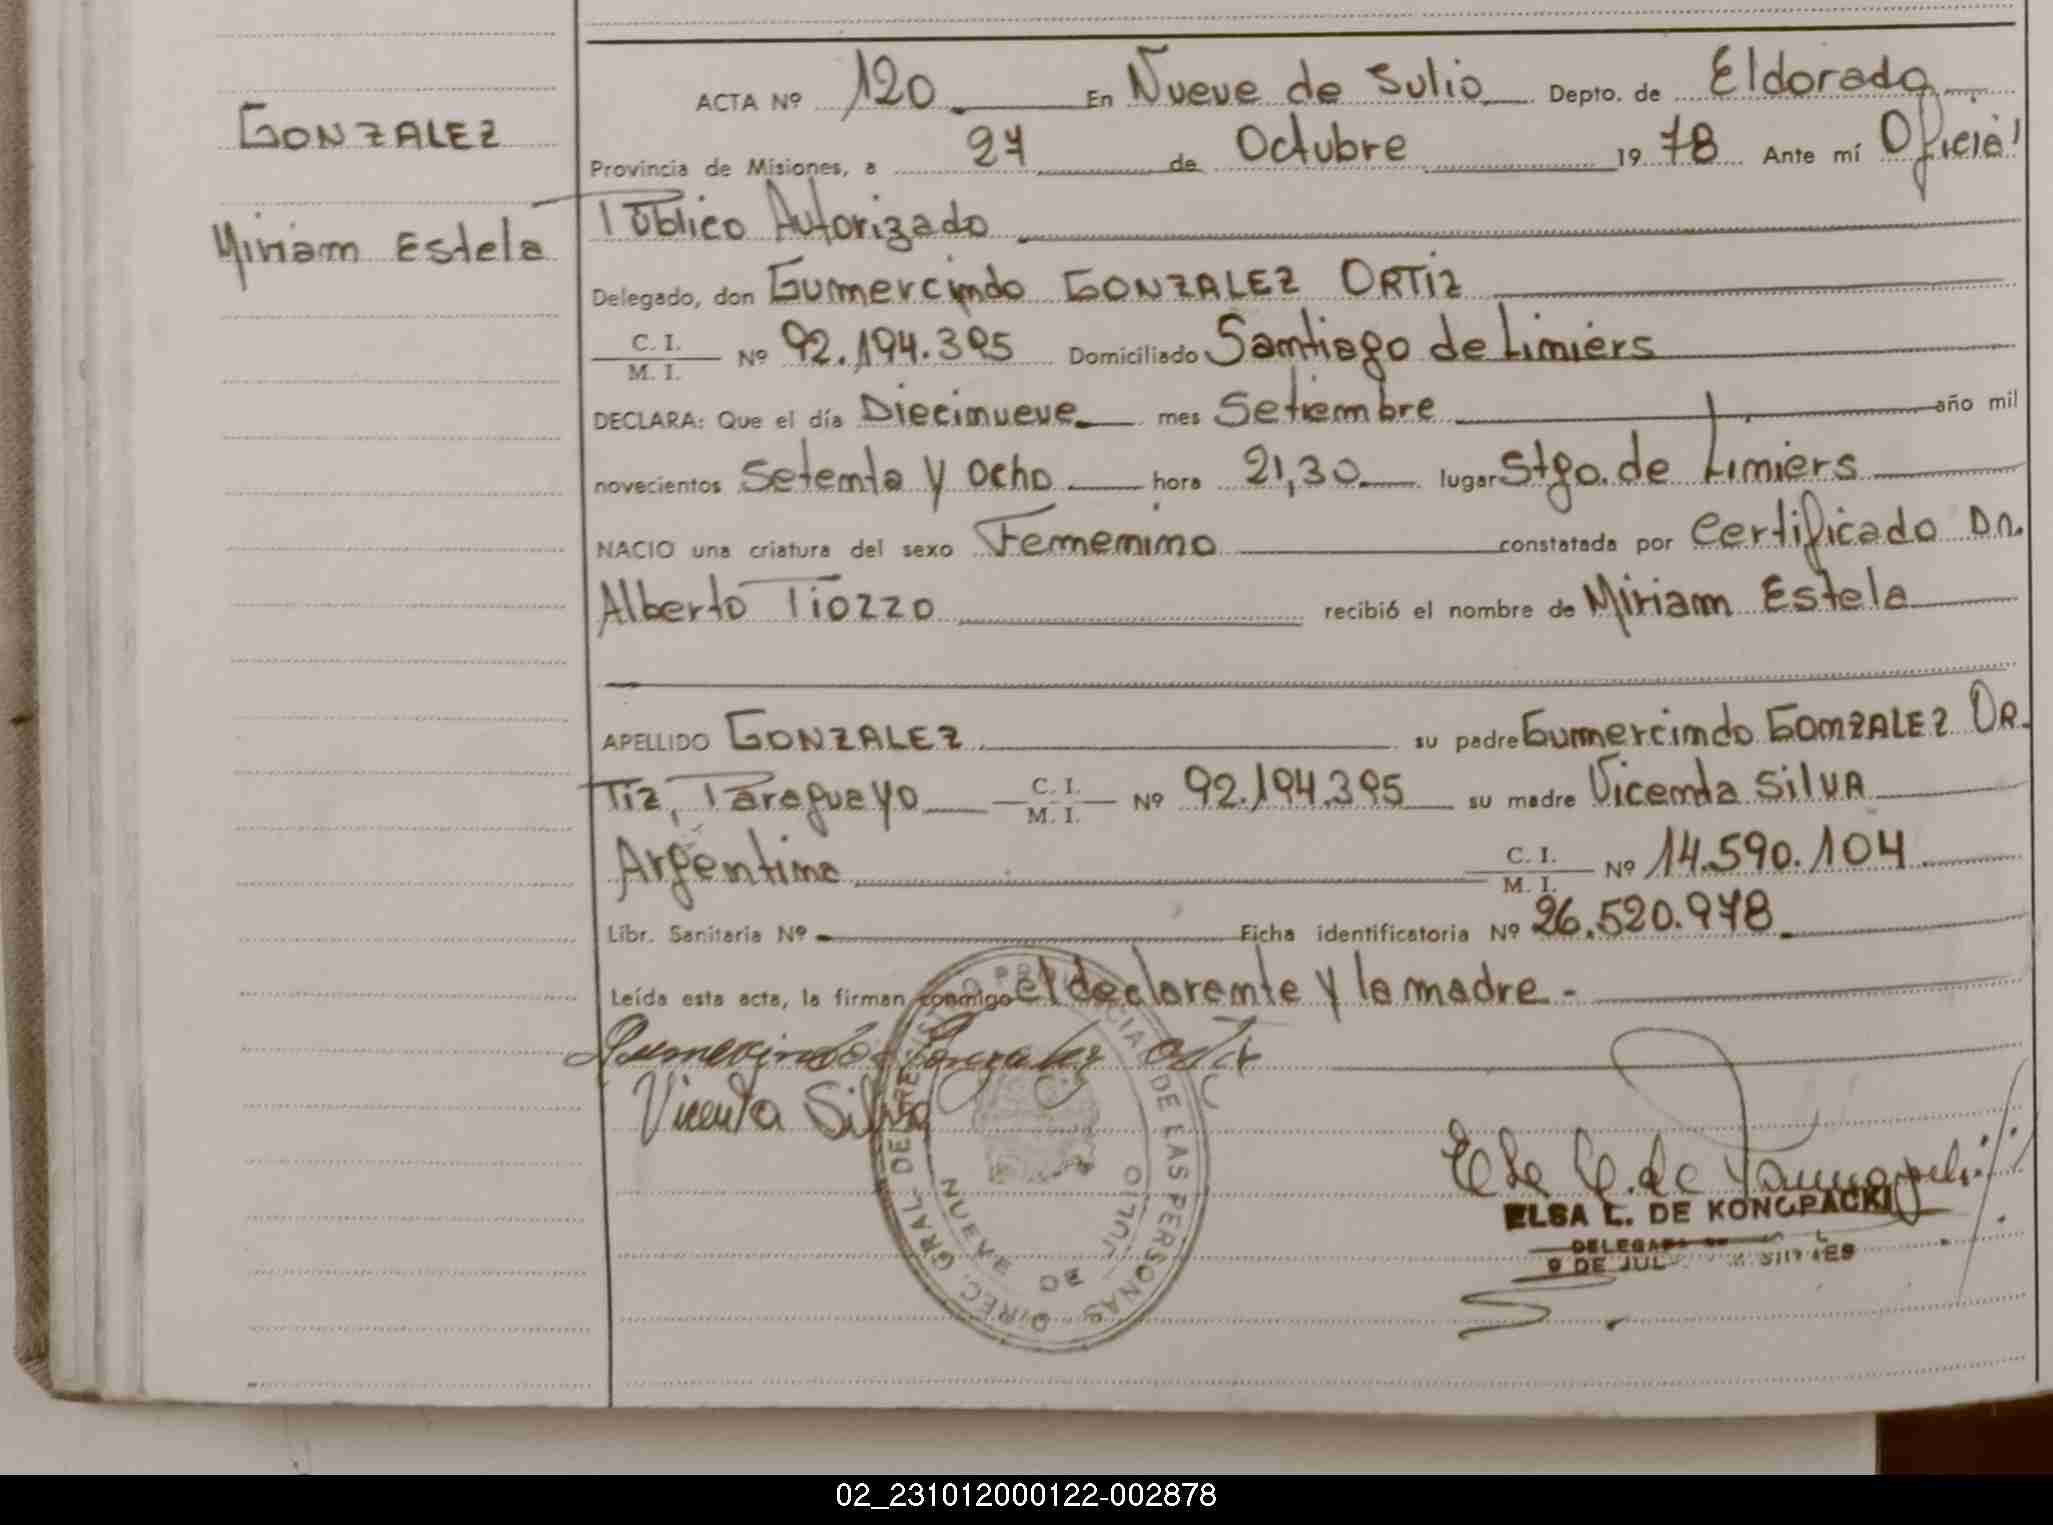 GONZALEZ
Miriam Estela
ACTA Nº 120 En Nueve de Julio Depto. de Eldorado
Provincia de Misiones, a 27 de Octubre 1978 Ante mí Oficial
Público Autorizado
Delegado, don Gumercindo GONZALEZ ORTIZ
C. I. / M. I. Nº 92.194.395 Domiciliado Santiago de Liniers
DECLARA: Que el día Diecinueve mes Setiembre año mil
novecientos Setenta y Ocho hora 21,30 lugar Stgo. de Liniers
NACIO una criatura del sexo Femenino constatada por Certificado Dr.
Alberto Tiozzo recibió el nombre de Miriam Estela
APELLIDO GONZALEZ su padre Gumercindo GONZALEZ OR-
TIZ, Paraguayo C. I. / M. I. Nº 92.194.395 su madre Vicenta SILVA
Argentina C. I. / M. I. Nº 14.590.104
Libr. Sanitaria Nº - Ficha identificatoria Nº 26.520.978
Leída esta acta, la firman conmigo el declarante y la madre.-
Gumercindo Gonzalez
Vicenta Silva
DIREC. GRAL. DEL REGISTRO PROVINCIAL DE LAS PERSONAS
NUEVE DE JULIO
ELSA L. DE KONOPACKI
DELEGADA
9 DE JULIO MISIONES
02_231012000122-002878